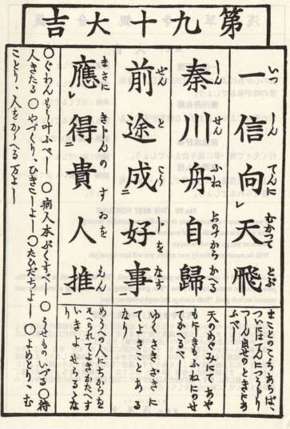 第九十大吉
一信向天飛
いつしんてんにむかつてとぶ
まことのこゝろあらば、
ついにはてんにつうじり
つしん出せのときにあ
ふべし
秦川舟自歸
しんせんふねおのづからかへる
天のめぐみにてあや
もにしきもふねにのせ
てかへるべし
前途成好事
ぜんとこうじをなす
ゆくさきざきに
てよきことある
なり
應得貴人推
まさにきじんのすゐをえん
めうへの人にちからを
そへられてよきかたへす
いきよせらるゝな
り
○ぐわんもう叶ふべし ○病人本ぷくすべし ○うせものいづる ○待
人きたる ○やづくり、ひきこしよし ○たびだちよし ○よめとり、む
ことり、人をかゝへる万よし